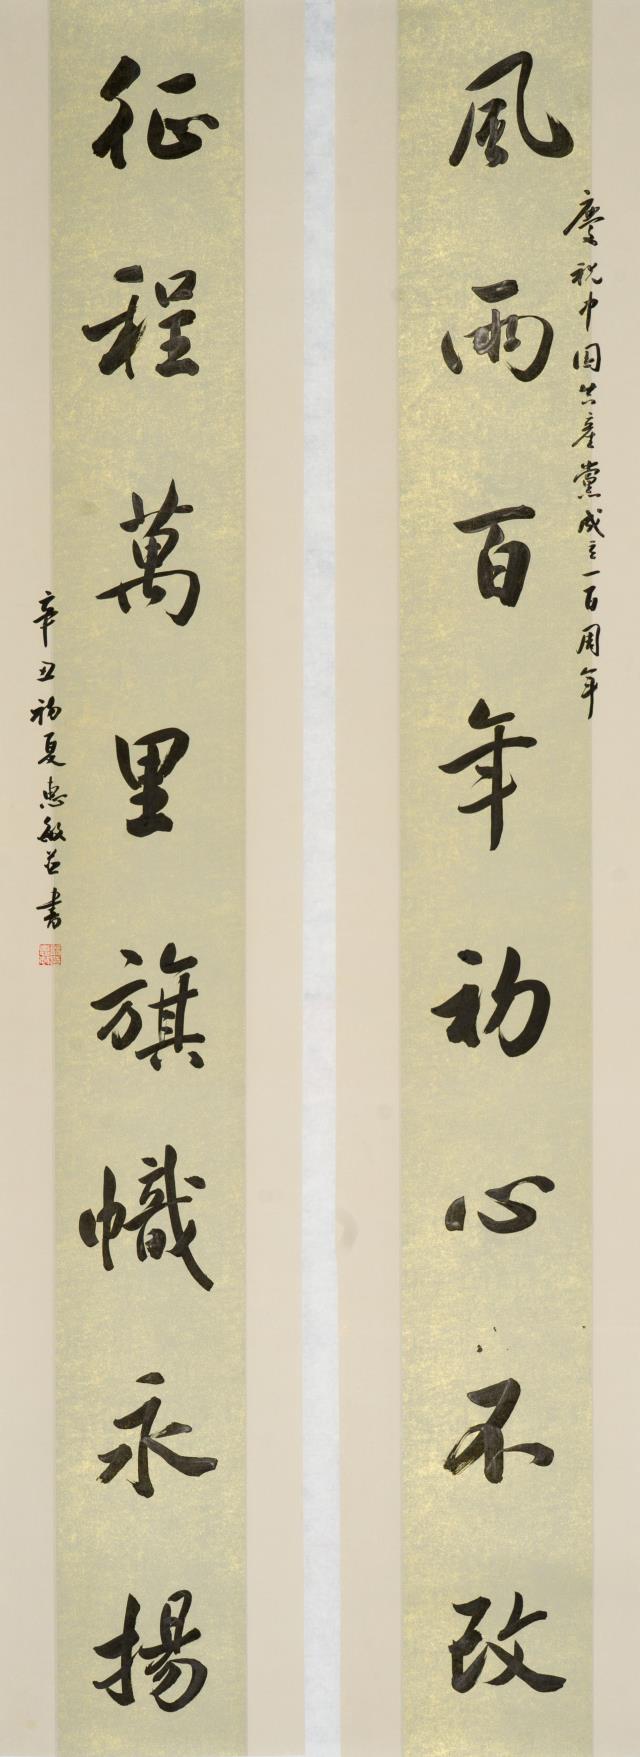 慶祝中国共産黨成立一百周年
風雨百年初心不改
征程萬里旗幟永揚
辛丑初夏惠敏並書